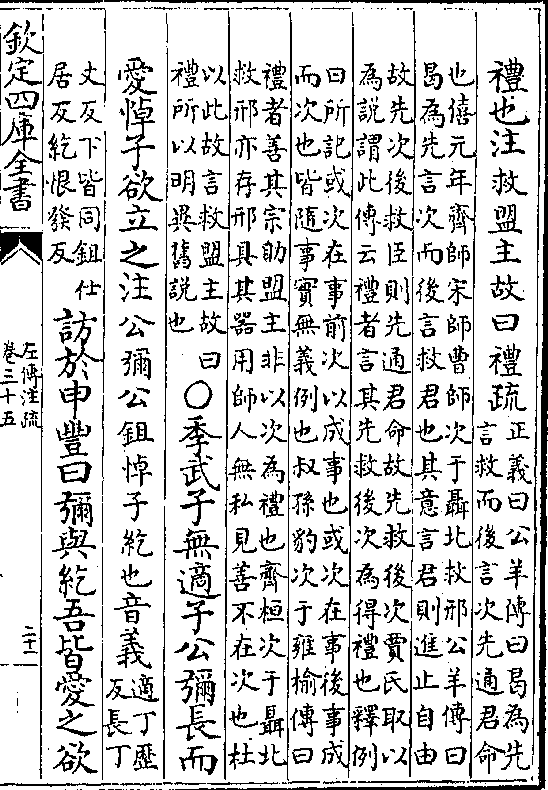 禮也注救盟主故曰禮疏
正義曰公羊傳曰曷為先
言救而後言次先通君命
也僖元年齊師宋師曹師次于聶北救邢公羊傳曰
曷為先言次而後言救君也其意言君則進止自由
故先次後救臣則先通君命故先救後次賈氏取以
為説謂此傳云禮者言其先救後次為得禮也釋例
曰所記或次在事前次以成事也或次在事後事成
而次也皆隨事實無義例也叔孫豹次于雍榆傳曰
禮者善其宗助盟主非以次為禮也齊桓次于聶北
救邢亦存邢具其器用師人無私見善不在次也杜
以此故言救盟主故曰
禮所以明異舊説也
○季武子無適子公彌長而
愛悼子欲立之注公彌公鉏悼子紇也音義
適丁歷
反長丁
丈反下皆同鉏仕
居反紇恨發反
訪於申豐曰彌與紇吾皆愛之欲
欽定四庫全書
左傳注疏
卷三十五
二十一